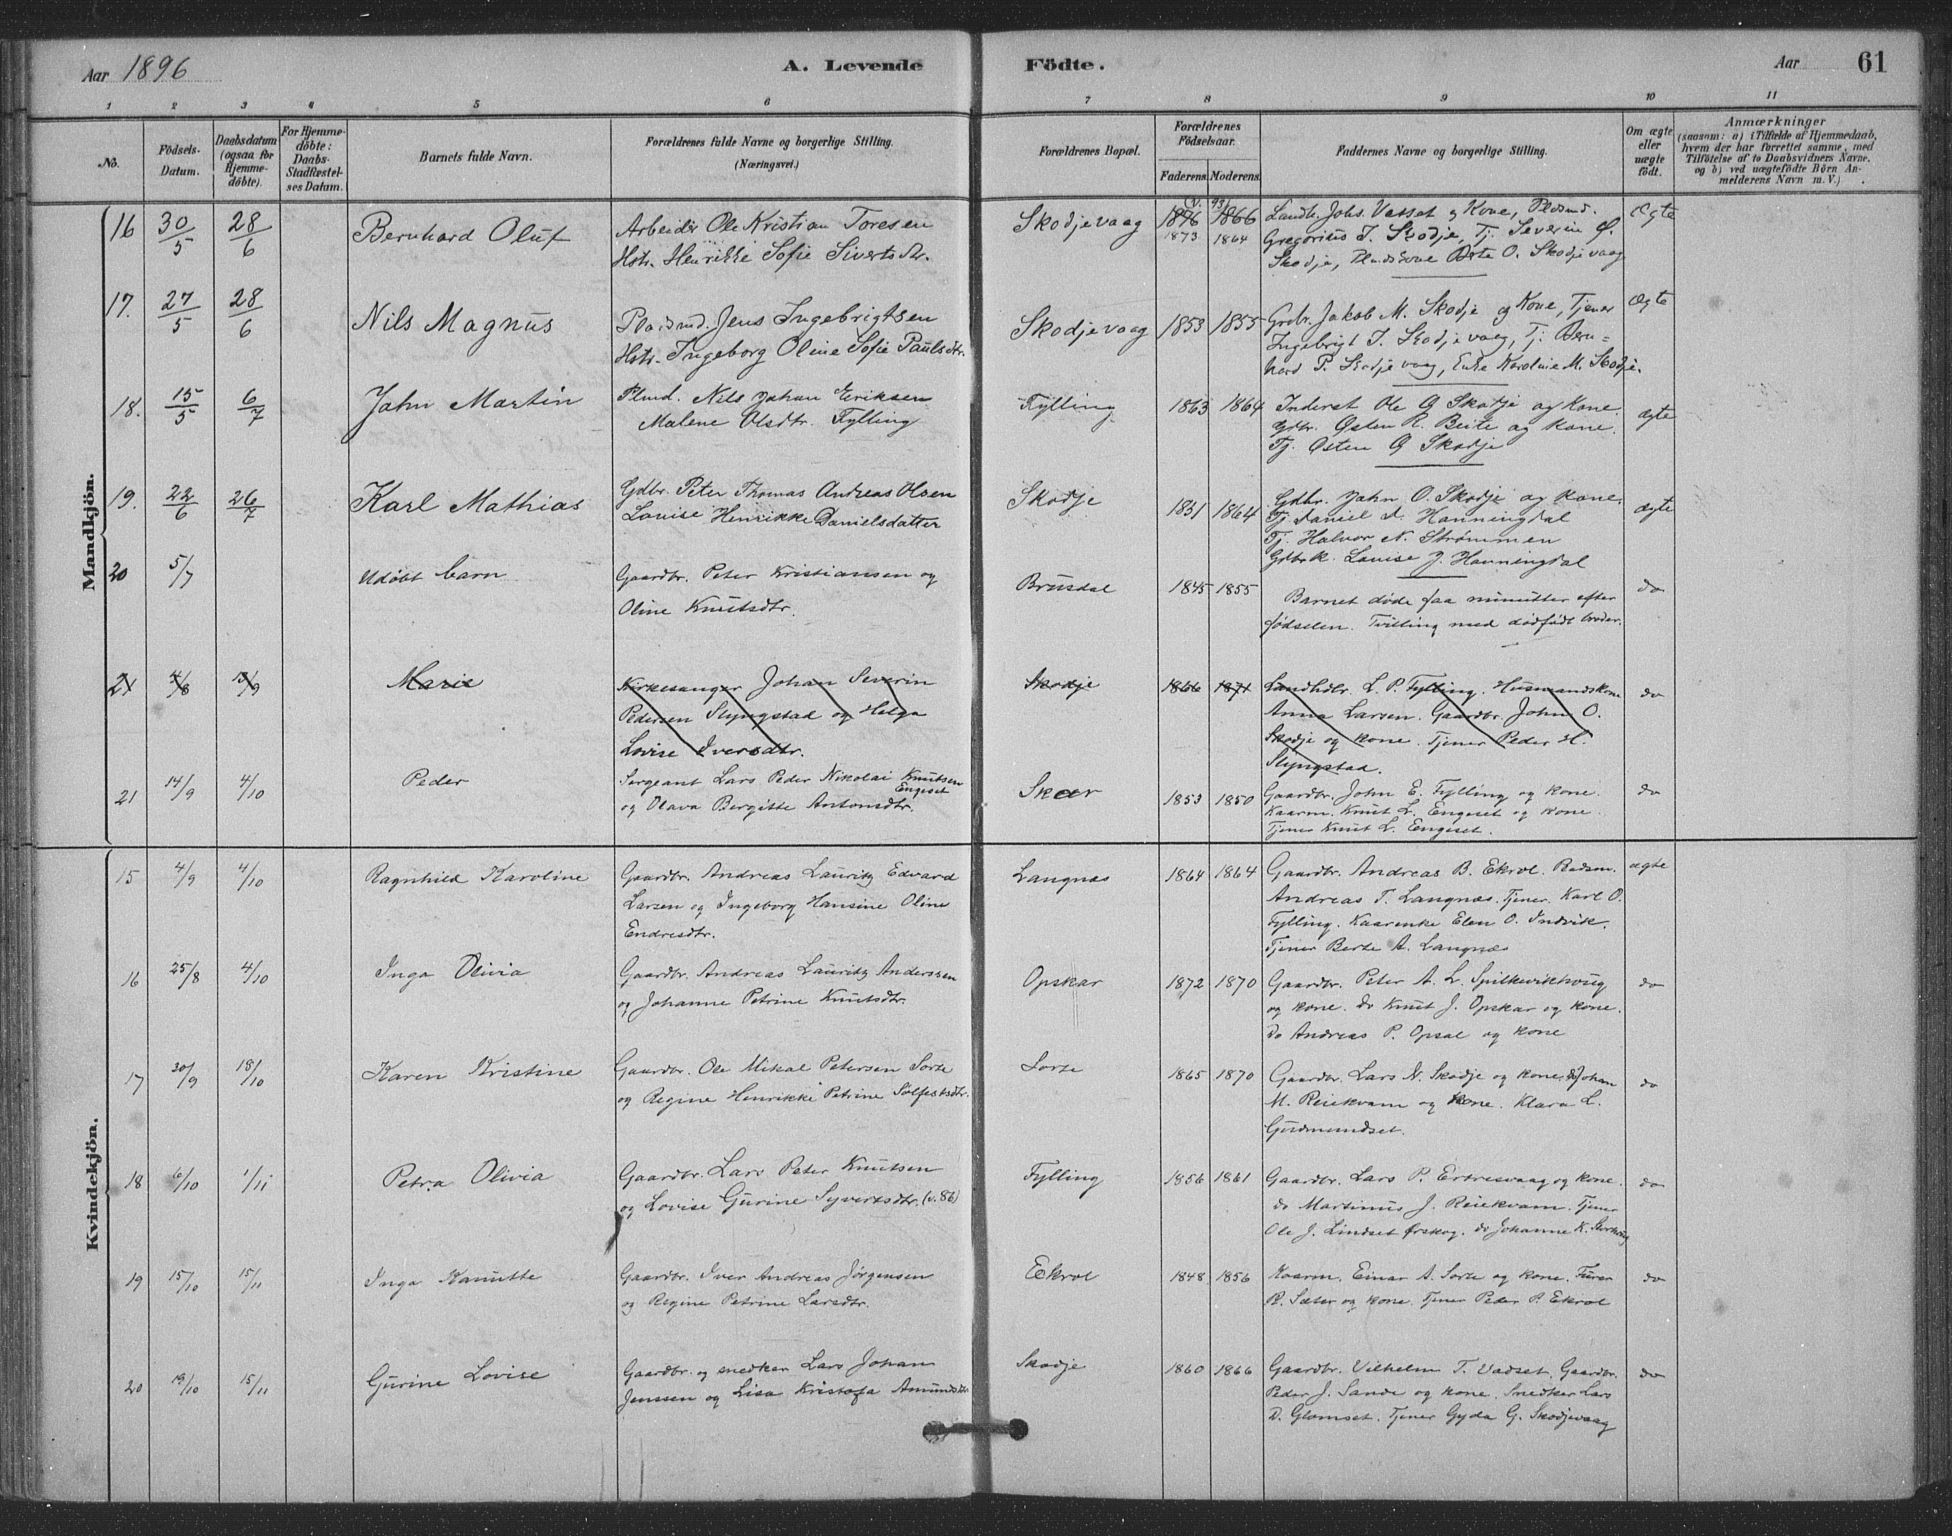 Aar 1896
A. Levende Födte.
Aar 61
1 2 3 4 5 6 7 8 9 10 11
No.
Födsels-Datum.
Daabsdatum (ogsaa for Hjemme-döbte).
For Hjemme-döbte: Daabs-Stadfæstel-ses Datum.
Barnets fulde Navn.
Forældrenes fulde Navne og borgerlige Stilling.
(Næringsvei.)
Forældrenes Bopæl.
Forældrenes Födselsaar.
Faderens. Moderens.
Faddernes Navne og borgerlige Stilling.
Om ægte eller uægte födt.
Anmærkninger
(saasom: a) i Tilfælde af Hjemmedaab,
hvem der har forrettet samme, med
Tilföielse af to Daabsvidners Navne,
og b) ved uægtefödte Börn An-
melderens Navn m. V.)
Mandkjön.
16 30/5 28/6 Bernhard Oluf Arbeider Ole Kristian Toresen Skodjevaag 1896 1866 Landh. Johs. Vasset og Kone, Pladsmd. Ægte
Hstr. Henrikke Sofie Sivertsdtr. (v. 93) 1873 1864 Gregorius I. Skodje, Tj. Severin Ø.
Skodje, Pladskone Berte O. Skodjevaag
17. 27/5 28/6 Nils Magnus Pladsmd. Jens Ingebrigtsen Skodjevaag 1853 1855 Grdbr. Jakob M. Skodje og Kone, Tjener Ægte
Hstr. Ingeborg Oline Sofie Paulsdtr. Ingebrigt I. Skodjevaag, Tj. Bern-
hard P. Skodjevaag, Enke Karoline M. Skodje.
18. 15/5 6/7 John Martin Plmd. Nils Johan Eriksen Fylling 1863 1864 Inderst Ole G Skodje og Kone. ægte
Malene Olsdtr. Fylling Gdbr. Østen R. Beite og Kone.
Tj. Østen G Skodje
19. 22/6 26/7 Karl Mathias Gdbr. Peter Thomas Andreas Olsen Skodje 1831 1864 Gdbr. John O. Skodje og Kone. ægte
Louise Henrikke Danielsdatter Tj. Daniel J. Honningdal
Tj. Halvor N. Strømmen
Gdbrk. Louise J. Honningdal
20 5/7 Udøbt barn Gaardbr. Peter Kristiansen og Brusdal 1845 1855 Barnet døde faa minutter efter do
Oline Knutsdtr. fødselen. Tvilling med dødfødt broder.
21 4/8 13/9 Marie Kirkesanger Johan Severin Skodje 1866 1871 Landhdlr. L. P. Fylling. Husmandskone do
Pedersen Slyngstad og Helga Anna Larsen. Gaardbr. John O.
Lovise Iversdtr. Skodje og kone. Tjener Peder H.
Slyngstad.
21 14/9 4/10 Peder Sergeant Lars Peder Nikolai Knutsen Skaar 1853 1850 Gaardbr. John E. Fylling og kone. do
Engeset
og Olava Bergitte Antonsdtr. Kaarm. Knut L. Engeset og kone.
Tjener Knut L. Engeset.
Kvindekjön.
15 4/9 4/10 Ragnhild Karoline Gaardbr. Andreas Lauritz Edvard Langnæs 1864 1864 Gaardbr. Andreas B. Ekrol. ægte
Larsen og Ingeborg Hansine Oline Andreas T. Langnæs. Tjener Karl O.
Endresdtr. Fylling. Kaarenke Elen O. Indvik.
Tjener Berte A. Langnæs
16 25/8 4/10 Inga Olivia Gaardbr. Andreas Lauritz Anderssen Opskar 1872 1870 Gaardbr. Peter A. L. Spilkevikhoug do
og Johanne Petrine Knutsdtr. og kone. do Knut J. Opskar og kone.
do Andreas P. Opsal og kone
17 20/9 18/10 Karen Kristine Gaardbr. Ole Mikal Petersen Sorte Sorte 1865 1870 Gaardbr. Lars N. Skodje og kone. do Johan do
og Regine Henrikke Petrine Solfestsdtr. M. Reiekvam og kone. Klara L.
Gudmundset.
18 6/10 1/11 Petra Olivia Gaardbr. Lars Peter Knutsen Fylling 1856 1861 Gaardbr. Lars P. Ertresvaag og kone. do
og Lovise Gurine Syvertsdtr. (v. 86) do Martinus J. Reiekvam. Tjener
Ole J. Lindset Ørskog. do Johanne K.
19 15/10 15/11 Inga Kanutte Gaardbr. Iver Andreas Jørgensen Ekrol 1848 1856 Kaarm. Einar A. Sorte og kone. do
og Regine Petrine Larsdtr. R. Sæter og kone. Tjener Peder P. Ekrol
20 19/10 15/11 Gurine Lovise Gaardbr. og snedker Lars Johan Skodje 1860 1866 Gaardbr. Vilhelm T. Vadset. Gaardbr. do
Jenssen og Lisa Kristofa Amundsdtr. Peder J. Sande og kone. Snedker Lars
D. Glomset. Tjener Gyda G. Skodjevaag